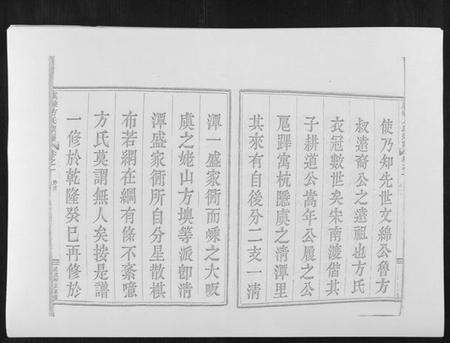 使乃知先世文綿公魯方
叔遺裔公之遠祖也方氏
衣冠數世矣宋南渡偕其
子耕道公嵩年公扈之公
扈蹕寓杭贍虞之清潭里
其來有自後分二支一清
潭一盛家衕而嵊之大畈
虞之姥山方墺等派卽清
潭盛家衕所自分星散棋
布若網在綱有條不紊噫
方氏莫謂無人矣按是譜
一修於乾隆癸巳再修於